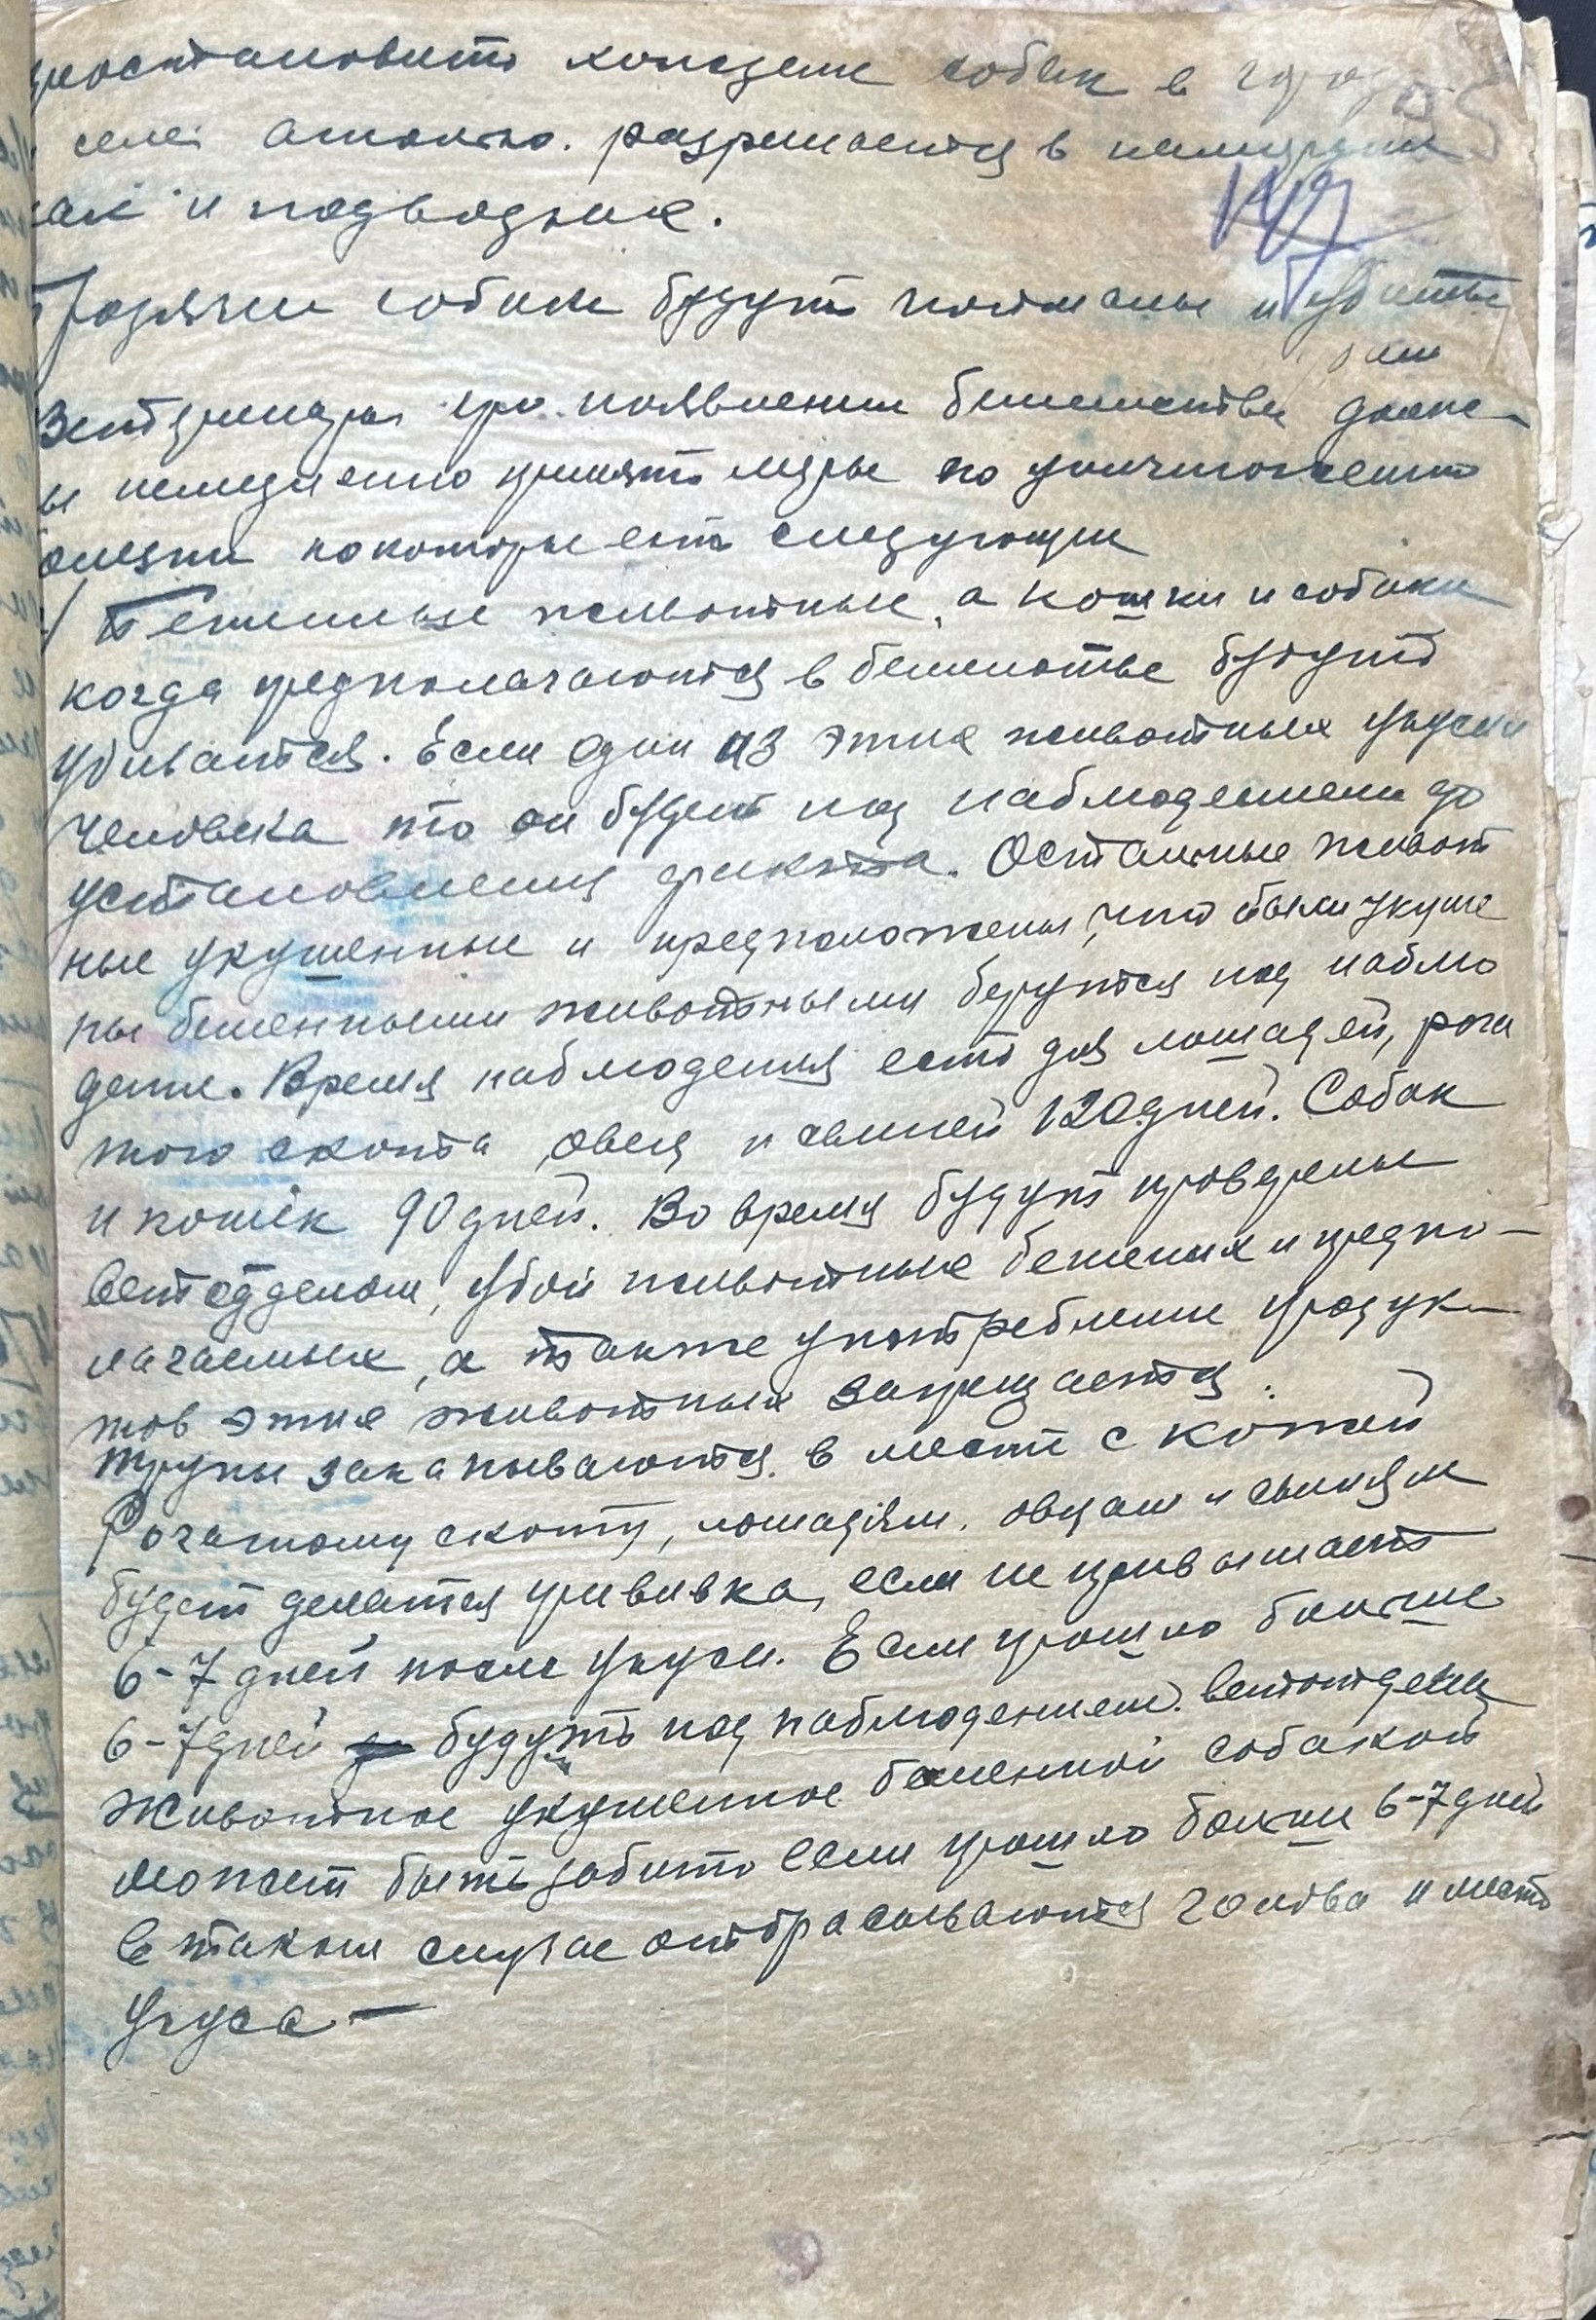 приостановить хождение собак в город
селе разрешается в намордни
ках и подводник.
Бродячии собаки будут пойманые и убитые
Ветеринары при появлении бешенства долж-
ы немедленно принять меры по уничтожению
олезни которые есть следующие
/ Бешенные животные, а кошки и собаки
когда предполагаются в бешенстве будут
убиватся. Если один из этих животных укуси
человека то он будет под наблюдением до
установления факта. Остальные живот
ные укушенные и предположены, что были укуше
ны бешенными животными берутся под наблю
дение. Время наблюдения есть для лошадей, рога
того скота, овец и свиней 120 дней. Собак
и кошек 90 дней. Во время будут проведены
ветотделом, убой животных бешеных и предпо-
лагаемых, а также употребление продук-
тов этих животных запрещается.
трупы закапываются в месте с кожей
Рогатому скоту, лошадям, овцам и свиням
будет делатся прививка, если не превышает
6-7 дней после укуса. Если прошло больше
6-7 дней будуть под наблюдением ветотдела
животное укушенное бешенной собакой
может быть забито если прошло больши 6-7 дней
в таком случае отбрасываются голова и место
укуса —